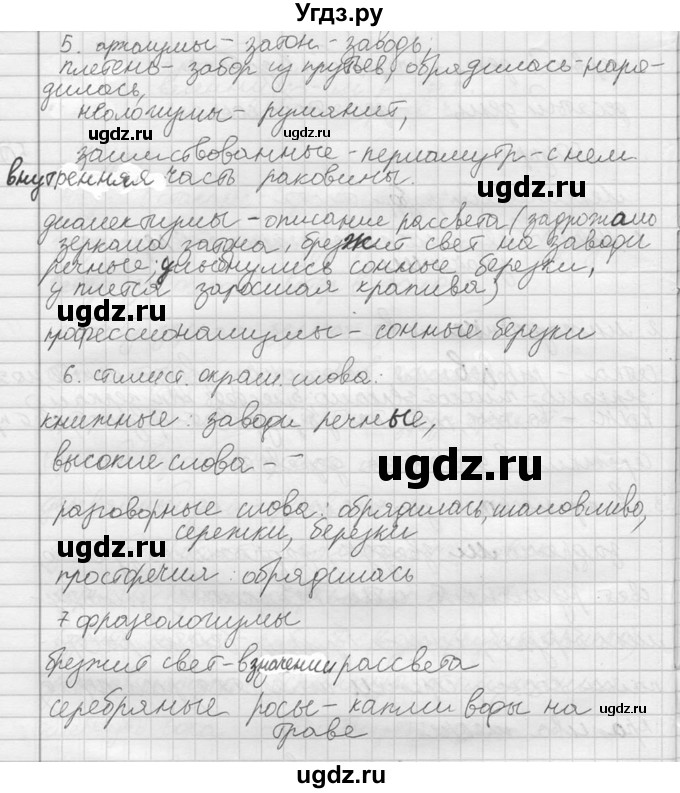 Угдз.ру
5. архаизмы – затон – заводь;
плетень – забор из прутьев, обрядилась – наря-
дилась,
неологизмы – румянит,
угдз.ру
угдз.ру
заимствованные – перламутр – с нем
внутренняя часть раковины.
диалектизмы – описание рассвета (задрожало
зеркало затона, брезжит свет на заводи
речные, улыбнулись сонные березки,
у плетня заросшая крапива)
угдз.ру
угдз.ру
профессионализмы – сонные березки
6. стилист. окраш. слова:
книжные: заводи речные,
высокие слова – –
угдз.ру
разговорные слова: обрядилась, шаловливо,
сережки, березки
угдз.ру
просторечия: обрядилась
7 фразеологизмы
брезжит свет – в значении рассвета
серебряные росы – капли воды на
траве
угдз.ру
угдз.ру
угдз.ру